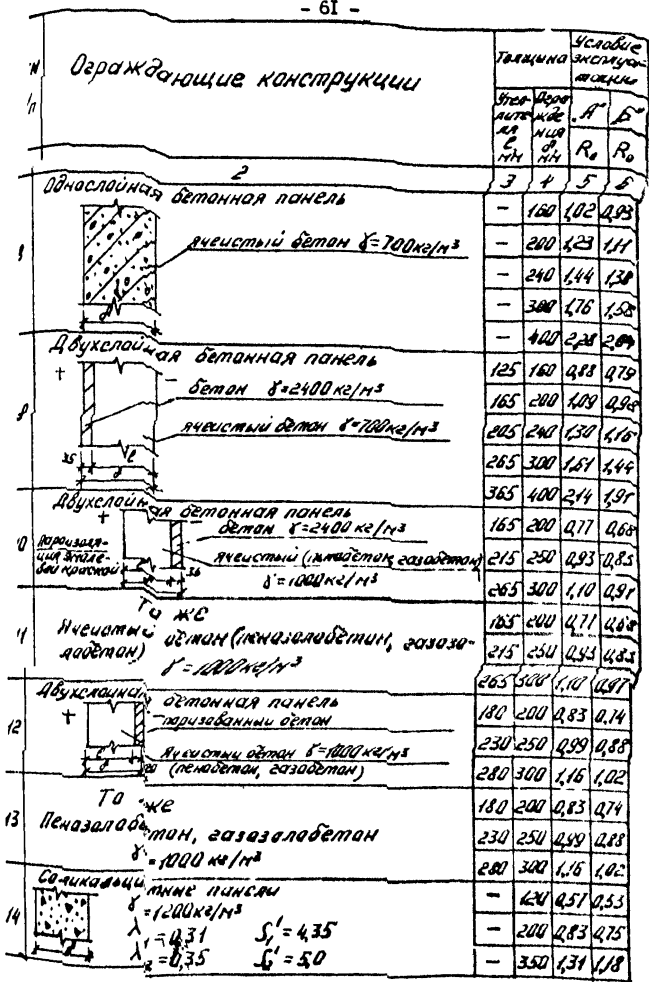 - 61 -
N
/п
Ограждающие конструкции
Толщина
Условие эксплуатации
Утеплителя ℓ мм
Ограждения δ мм
"А" R₀
"Б" R₀
2 3 4 5 6
Однослойная бетонная панель
ячеистый бетон γ=700кг/м³
- 160 1,02 0,93
- 200 1,23 1,11
- 240 1,44
- 300 1,76 1,58
- 400 2,28
Двухслойная бетонная панель
бетон γ=2400 кг/м³
ячеистый бетон γ=700кг/м³
35
125 160 0,88 0,79
165 200 1,09 0,98
205 240 1,30 1,16
265 300 1,61 1,44
365 400 2,14 1,91
10
Двухслойная бетонная панель
бетон γ=2400 кг/м³
Пароизоляция
краской
ячеистый (пенобетон, газобетон)
γ=1000кг/м³
165 200 0,77 0,68
215 250 0,93 0,83
265 300 1,10 0,97
То же
Ячеистый бетон (пеназолабетон, газозолабетон)
γ=1000кг/м³
165 200 0,71 0,68
215 250 0,93 0,83
265 300 1,10 0,97
12
Двухслойная бетонная панель
поризованный бетон
Ячеистый бетон γ=1000кг/м³
(пенобетон, газобетон)
180 200 0,83 0,74
230 250 0,99 0,88
280 300 1,16 1,02
13
То же
Пеназолабетон, газазалабетон
γ=1000 кг/м³
180 200 0,83 0,74
230 250 0,99 0,88
280 300 1,16 1,02
14
Силикальцитные панели
γ=1200кг/м³
λ₁=0,31 S₁'=4,35
λ₂=0,35 S₂'=5,0
- 120 0,57 0,53
- 200 0,83 0,75
- 350 1,31 1,18